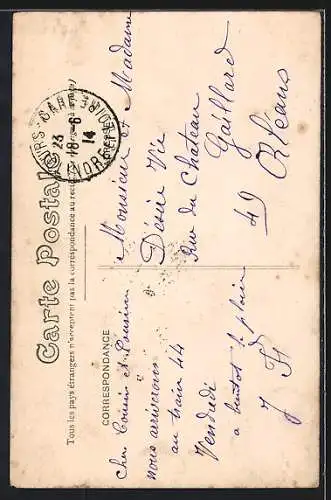 Carte Postale
Tous les pays étrangers n'acceptent pas la correspondance au recto
CORRESPONDANCE
23
18-6
14
Cher Cousin et Cousine
nous arriverons
au train 44
Vendredi
a bientot
Monsieur et Madame
Désiré Vié
Rue du Chateau
Gaillard
49 Orléans